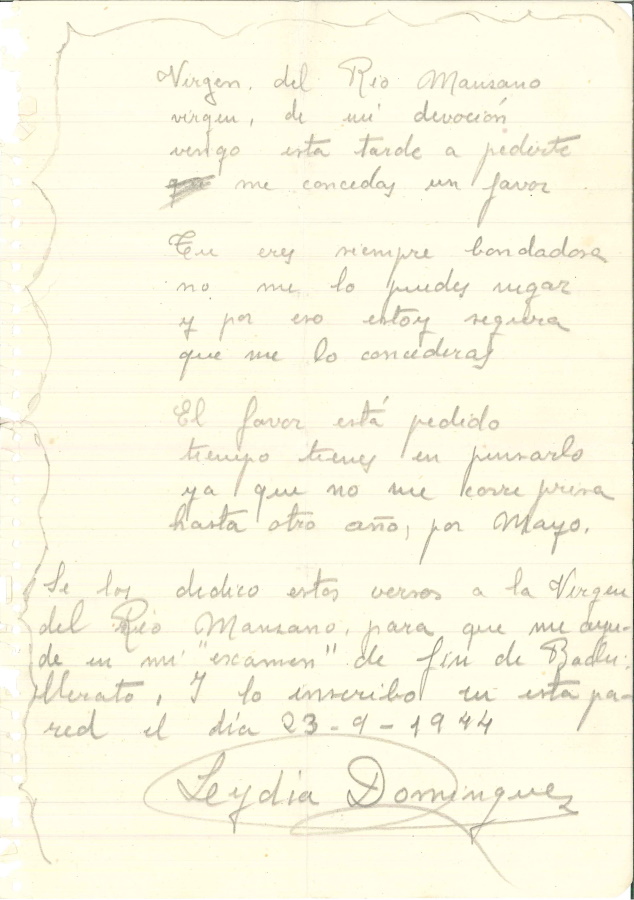 Virgen. del Rio Mansano
virgen, de mi devoción
vengo esta tarde a pedirte
me concedas un favor
Tu eres siempre bondadosa
no me lo puedes negar
y por eso estoy segura
que me lo concederas
El favor está pedido
tiempo tienes en pensarlo
ya que no me corre prisa
hasta otro año, por Mayo.
Se los dedico estos versos a la Virgen
del Rio Mansano, para que me ayu-
de en mi "escamen" de fin de Bachi-
llerato, I lo inscribo en esta pa-
red el día 23-9-1944
Leydia Dominguez